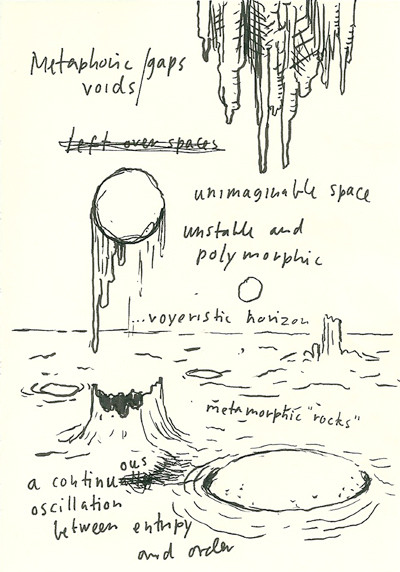 Metaphoric/gaps
voids/
left over spaces
unimaginable space
unstable and
polymorphic
...voyoristic horizon
metamorphic "rocks"
a continuous
oscillation
between entropy
and order